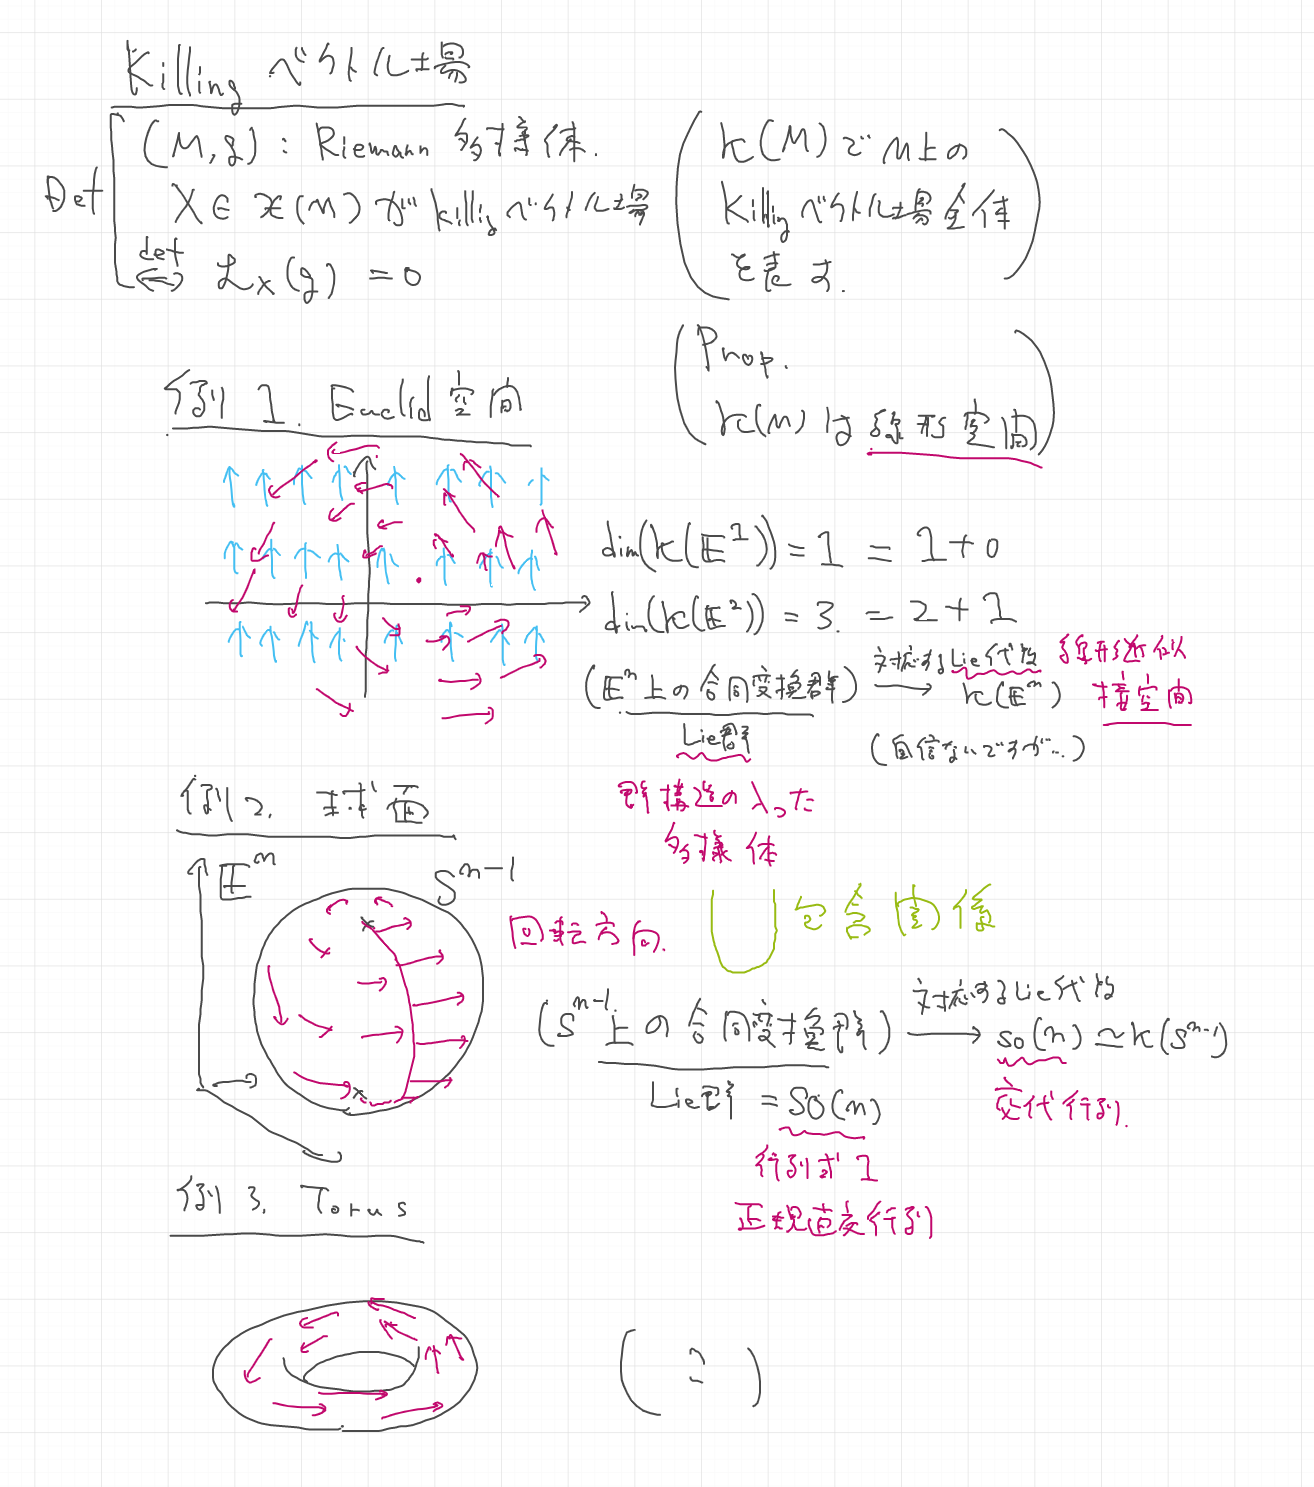 Killing ベクトル場
Def
(M, g) : Riemann 多様体.
X ∈ 𝔛(M) が Killig ベクトル場
def
⟺ 𝓛x(g) = 0
κ(M) で M上の
Killing ベクトル場全体
を表す.
Prop.
κ(M) は 線形空間
例 1. Euclid 空間
dim(κ(𝔼¹)) = 1 = 1+0
dim(κ(𝔼²)) = 3. = 2+1
(𝔼ⁿ上の合同変換群) → κ(𝔼ⁿ)
対応するLie代数
線形近似
接空間
Lie群
(自信ないですが…)
群構造の入った
多様体
例 2. 球面
𝔼ⁿ
Sⁿ⁻¹
回転方向.
∪ 包含関係
(Sⁿ⁻¹上の合同変換群) → so(n) ≃ κ(Sⁿ⁻¹)
対応するLie代数
Lie群 = SO(n)
交代行列.
行列式 1
正規直交行列
例 3. Torus